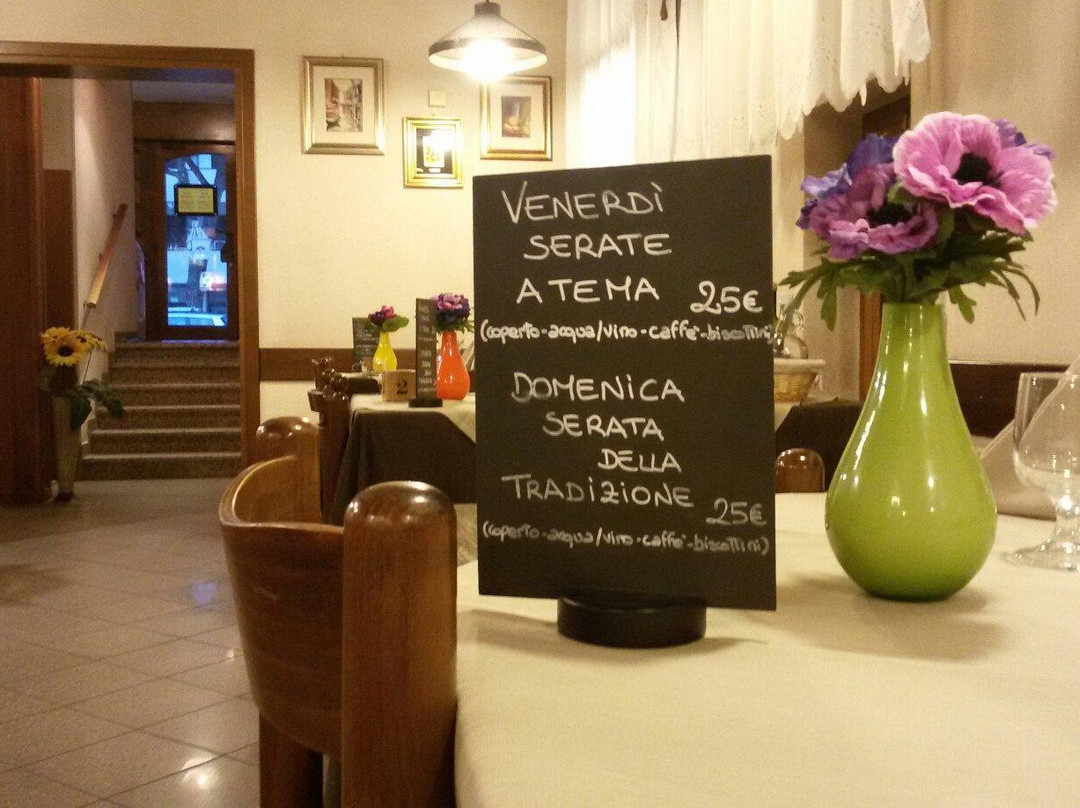 VENERDÌ
SERATE
A TEMA 25€
(coperto-acqua/vino-caffe'-biscottini)
DOMENICA
SERATA
DELLA
TRADIZIONE 25€
(coperto-acqua/vino-caffe'-biscottini)
2